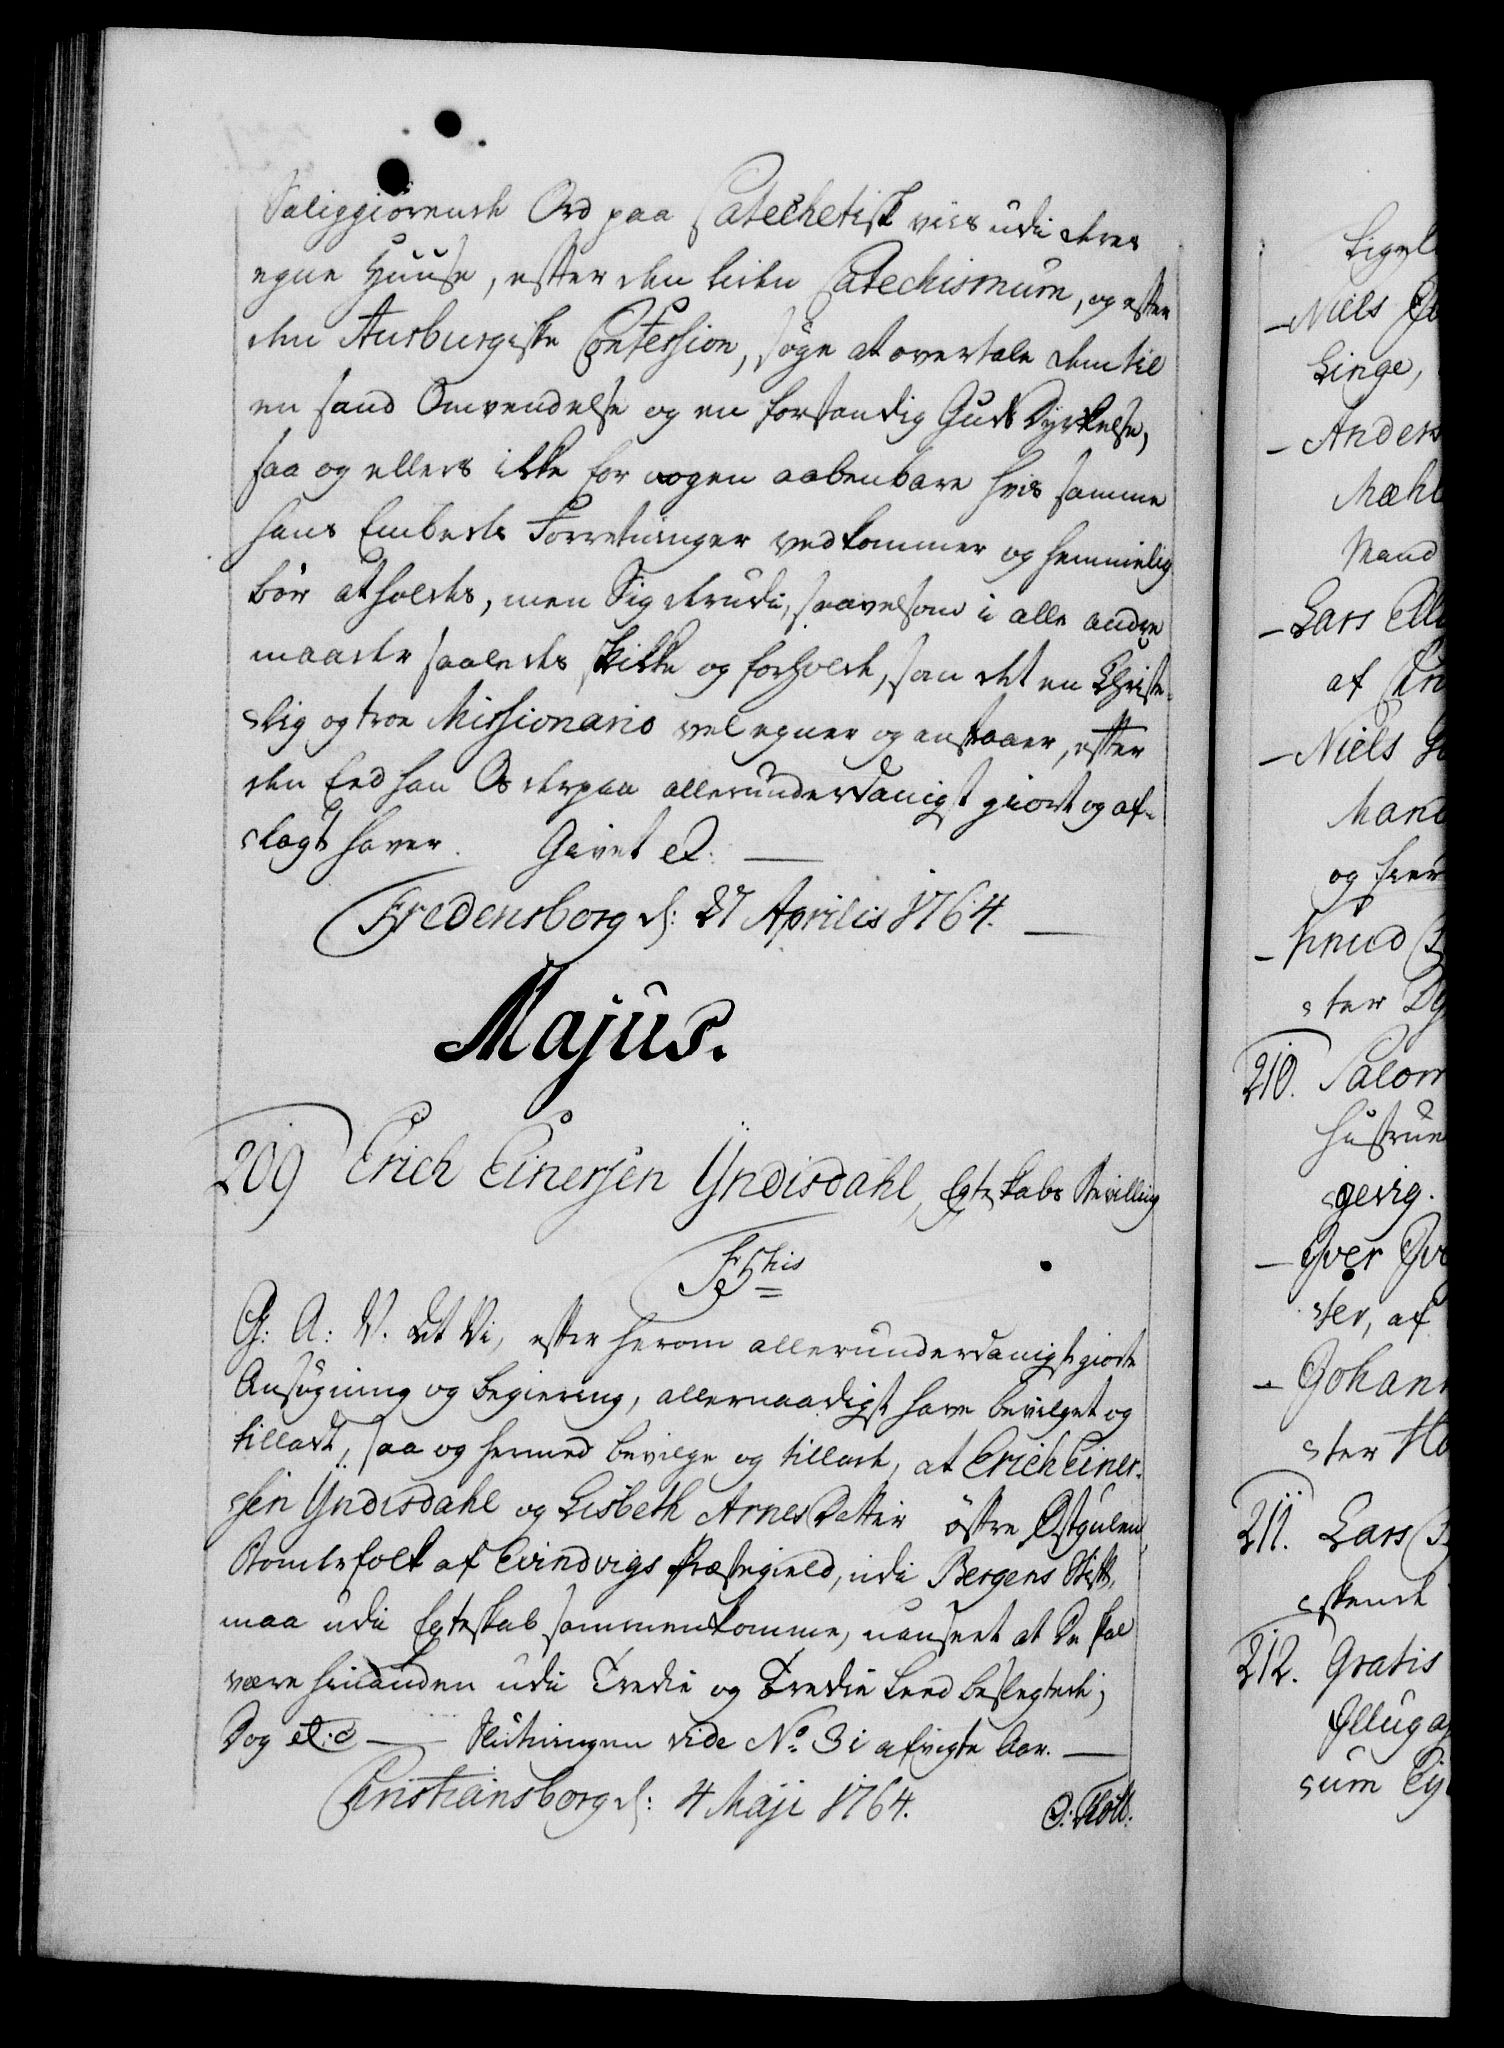 Saliggiörende Ord paa Catechetisk viis udi deres
egne Huuse, efter den liden Catechismum, og efter
den Ausburgiske Confession, söge at overtale dem til
en sand Omvendelse og en forstandig Guds Dyrkelse,
saa og ellers ikke for nogen aabenbare hvis samme
hans Embeds Forretninger vedkommer og hemmelig
bör at holdes, men Sig derudi, saavelsom i alle andre
maader saaledes skikke og forholde, som det en Christe-
lig og troe Missionario vel egner og anstaaer, efter
den Eed han Os derpaa allerunderdanigst giort og af-
lagt haver. Givet etc: —
Fredensborg d: 27 Aprilis 1764. —
Majus.
209 Erich Einersen Yndisdahl, Egteskabs Bevilling
G: A: V. At Vi, efter herom allerunderdanigst giorte
Ansögning og begiering, allernaadigst have bevilget og
tilladt, saa og hermed bevilge og tillade, at Erich Einer-
sen Yndisdahl og Lisbeth Arnes Datter östre Ostgulen,
af Evindvigs Præstegield, udi Bergens Stift,
maa udi Egteskab sammenkomme, uanseet at De skal
være hinanden udi Tredie og Tredie Leed beslegtede;
Dog etc — Slutningen vide No. 31 afvigte Aar. —
Christiansborg d: 4 Maji 1764. O: Thott.
Niels
Linge,
- Anders
Mand
- Lars
af
- Niels
Mand
og
- Knud
ster
210.
gevig.
- Iver
ster, af
- Johan
ster
211. Lars
212. Gratis
sum